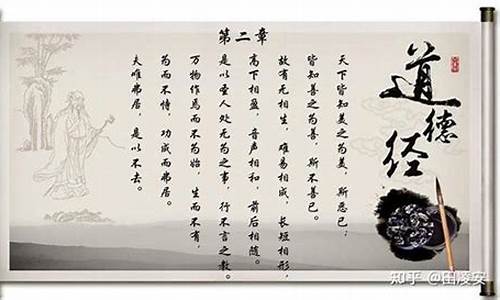 道德经
第二章
天下皆知美之为美，斯恶已；
皆知善之为善，斯不善已。
故有无相生，难易相成，长短相形，
高下相盈，音声相和，前后相随。
是以圣人处无为之事，行不言之教。
万物作焉而不为始，生而不有，
为而不恃，功成而弗居。
夫唯弗居，是以不去。
知乎 @田陵安